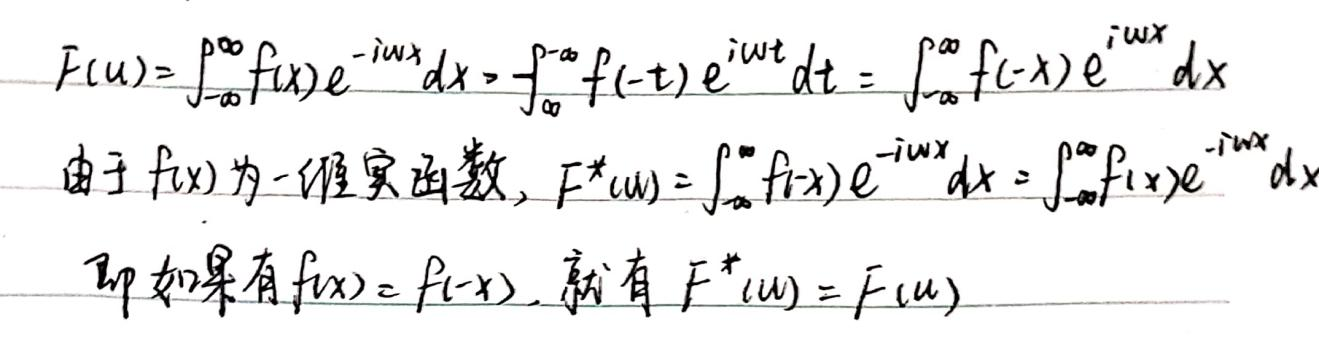 F(u) = ∫_{-∞}^{∞} f(x) e^{-iωx} dx = -∫_{∞}^{-∞} f(-t) e^{iωt} dt = ∫_{-∞}^{∞} f(-x) e^{iωx} dx
由于 f(x) 为一维实函数, F*(u) = ∫_{-∞}^{∞} f(-x) e^{-iωx} dx = ∫_{-∞}^{∞} f(x) e^{-iωx} dx
即 如果有 f(x) = f(-x), 就有 F*(u) = F(u)